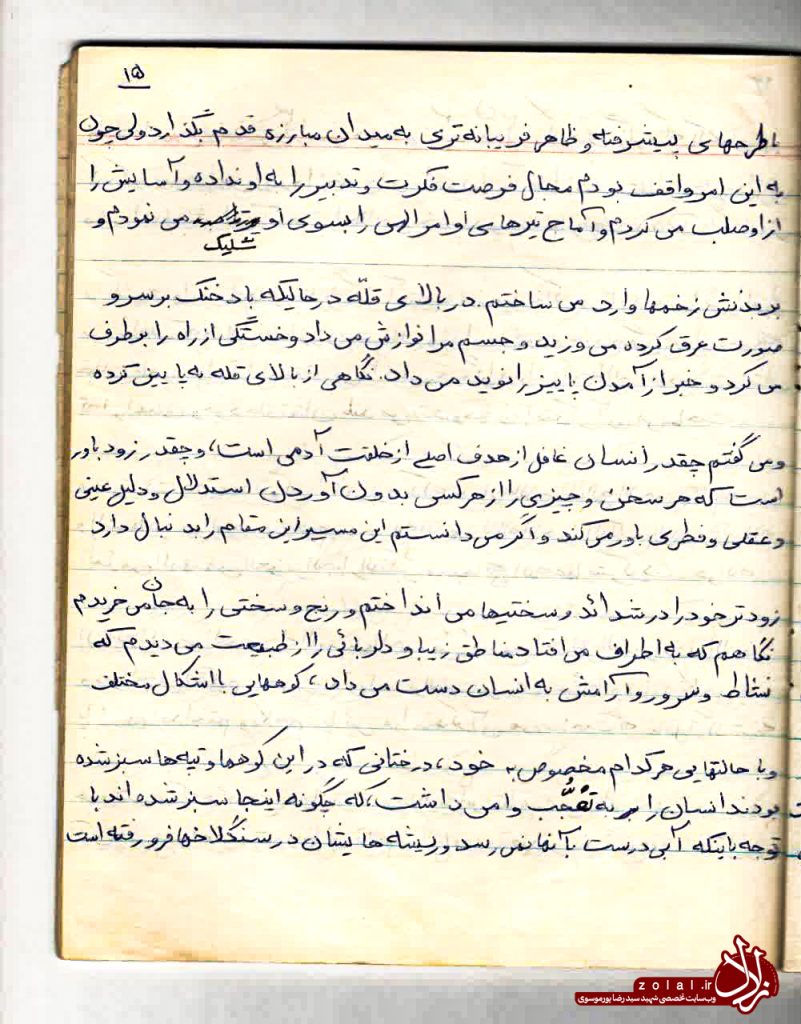 ۱۵
باطرحهای پیشرفته و ظاهر فریبانه‌تری به میدان مبارزه قدم بگذارد ولی چون
به این امر واقف بودم مجال فرصت فکرت و تدبیر را به او نداده و آسایش را
از او صلب می کردم و آماج تیرهای اوامر الهی را بسوی او می نمودم و
شلیک
بر بدنش زخمها وارد می ساختم. در بالای قلّه در حالیکه باد خنک بر سر و
صورت عرق کرده می وزید و جسم مرا نوازش می داد و خستگی از راه را برطرف
می کرد و خبر از آمدن پاییز را نوید می داد. نگاهی از بالای قله به پایین کرده
و می گفتم چقدر انسان غافل از هدف اصلی از خلقت آدمی است، و چقدر زود باور
است که هر سخن و چیزی را از هر کسی بدون آوردن استدلال و دلیل عینی
و عقلی و فطری باور می کند و اگر می دانستم این مسیر این مقام را بدنبال دارد
زودتر خود را در شدائد و سختیها می انداختم و رنج و سختی را به جان می خریدم
نگاهم که به اطراف می افتاد مناطق زیبا و دلربائی را از طبیعت می دیدم که
نشاط و سرور و آرامش به انسان دست می داد، کوههایی با اشکال مختلف
و با حالتهایی هر کدام مخصوص به خود، درختانی که در این کوهها و تپه ها سبز شده
بودند انسان را به تعُّجب وا می داشت، که چگونه اینجا سبز شده اند با
توجه باینکه آبی درست بآنها نمی رسد و ریشه هایشان در سنگلاخها فرو رفته است
زلال
zolal.ir
وب‌سایت تخصصی شهید سید رضا پورموسوی